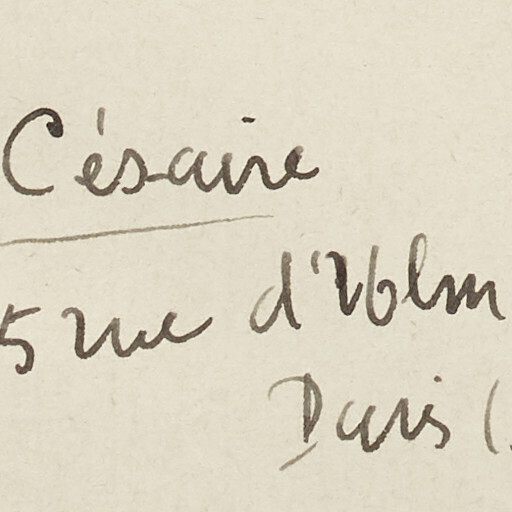 Césaire
5 rue d'Ulm
Paris (